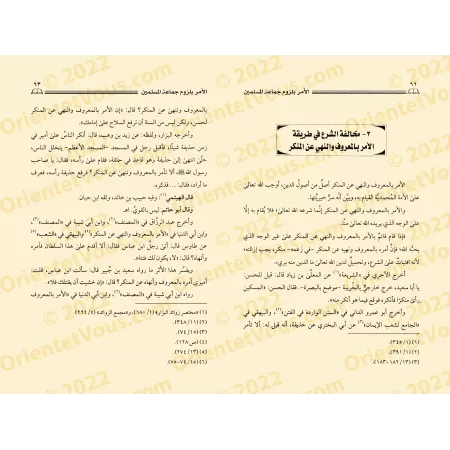 ٩٢
الأمر بلزوم جماعة المسلمين
٢- مخالفة الشرع في طريقة
الأمر بالمعروف والنهي عن المنكر
الأمر بالمعروف والنهي عن المنكر أصل من أصول الدين، أوجب الله تعالى
على الأمة المحمدية القيام به، وبين أنه سر خيريتها.
والأمر بالمعروف والنهي عن المنكر إنما شرعه الله تعالى؛ فلا يقام به إلا
على الوجه الذي يريده الله تعالى منا.
فإذا قام قائم بالأمر بالمعروف والنهي عن المنكر على غير الوجه الذي
يحبه الله؛ فإن أمره بالمعروف ونهيه عن المنكر -في زعمه- منكر يجب إزالته؛
لأنه افتيات على الشرع، وتحميل لدين الله تعالى ما الدين منه بري.
أخرج الآجري في «الشريعة»(١) عن المعلى بن زياد قال: قيل للحسن:
يا أبا سعيد، خرج خارجي بالخريبة -موضع بالبصرة-. فقال الحسن: «المسكين
رأى منكرًا فأنكره فوقع فيما هو أنكر منه».
وأخرج أبو عمرو الداني في «السنن الواردة في الفتن»(٢)، والبيهقي في
«الجامع لشعب الإيمان»(٣) عن أبي البختري عن حذيفة، أنه قيل له: ألا تأمر
(١) (١/ ٣٤٥).
(٢) (١/ ٣٩١).
(٣) (١٣/ ١٨٢-١٨٣).
الأمر بلزوم جماعة المسلمين
٩٣
بالمعروف وتنهى عن المنكر؟ قال: «إن الأمر بالمعروف والنهي عن المنكر
لحسن، ولكن ليس من السنة أن ترفع السلاح على إمامك».
وأخرجه البزار، ولفظه: عن زيد بن وهب، قال: أنكر الناس على أمير في
زمن حذيفة شيئًا، فأقبل رجل في المسجد -المسجد الأعظم- يتخلل الناس،
حتى انتهى إلى حذيفة وهو قاعد في حلقة، فقام على رأسه، فقال: يا صاحب
رسول الله ﷺ ألا تأمر بالمعروف وتنهى عن المنكر؟ فرفع حذيفة رأسه، فعرف
ما أراد، قال: ... فذكره.
قال الهيثمي(١): وفيه حبيب بن خالد، وثقه ابن حبان.
وقال أبو حاتم: ليس بالقوي. اهـ
وأخرج عبد الرزاق في «المصنف»(٢)، وابن أبي شيبة في «المصنف»(٣)،
وابن أبي الدنيا في «الأمر بالمعروف والنهي عن المنكر»(٤) والبيهقي في «الشعب»(٥)
عن طاوس قال: أتى رجل ابن عباس فقال: ألا أقدم على هذا السلطان فآمره
وأنهاه؟ قال: «لا، يكون لك فتنة».
ويفسر هذا الأثر ما رواه سعيد بن جبير قال: سألت ابن عباس، قلت:
أميري آمره بالمعروف وأنهاه عن المنكر؟ قال: «إن خشيت أن يقتلك فلا».
رواه ابن أبي شيبة في «المصنف»(٦)، وابن أبي الدنيا في «الأمر بالمعروف
(١) «مختصر زوائد البزار» (١/ ٦٨٠)، و«مجمع الزوائد» (٥/ ٢٢٤).
(٢) (١١/ ٣٤٨).
(٣) (١٥/ ٧٤).
(٤) (ص ١٢٨).
(٥) (١٣/ ٢٧٤).
(٦) (١٥/ ٧٤-٧٥).
© 2022
OrientetVous.com